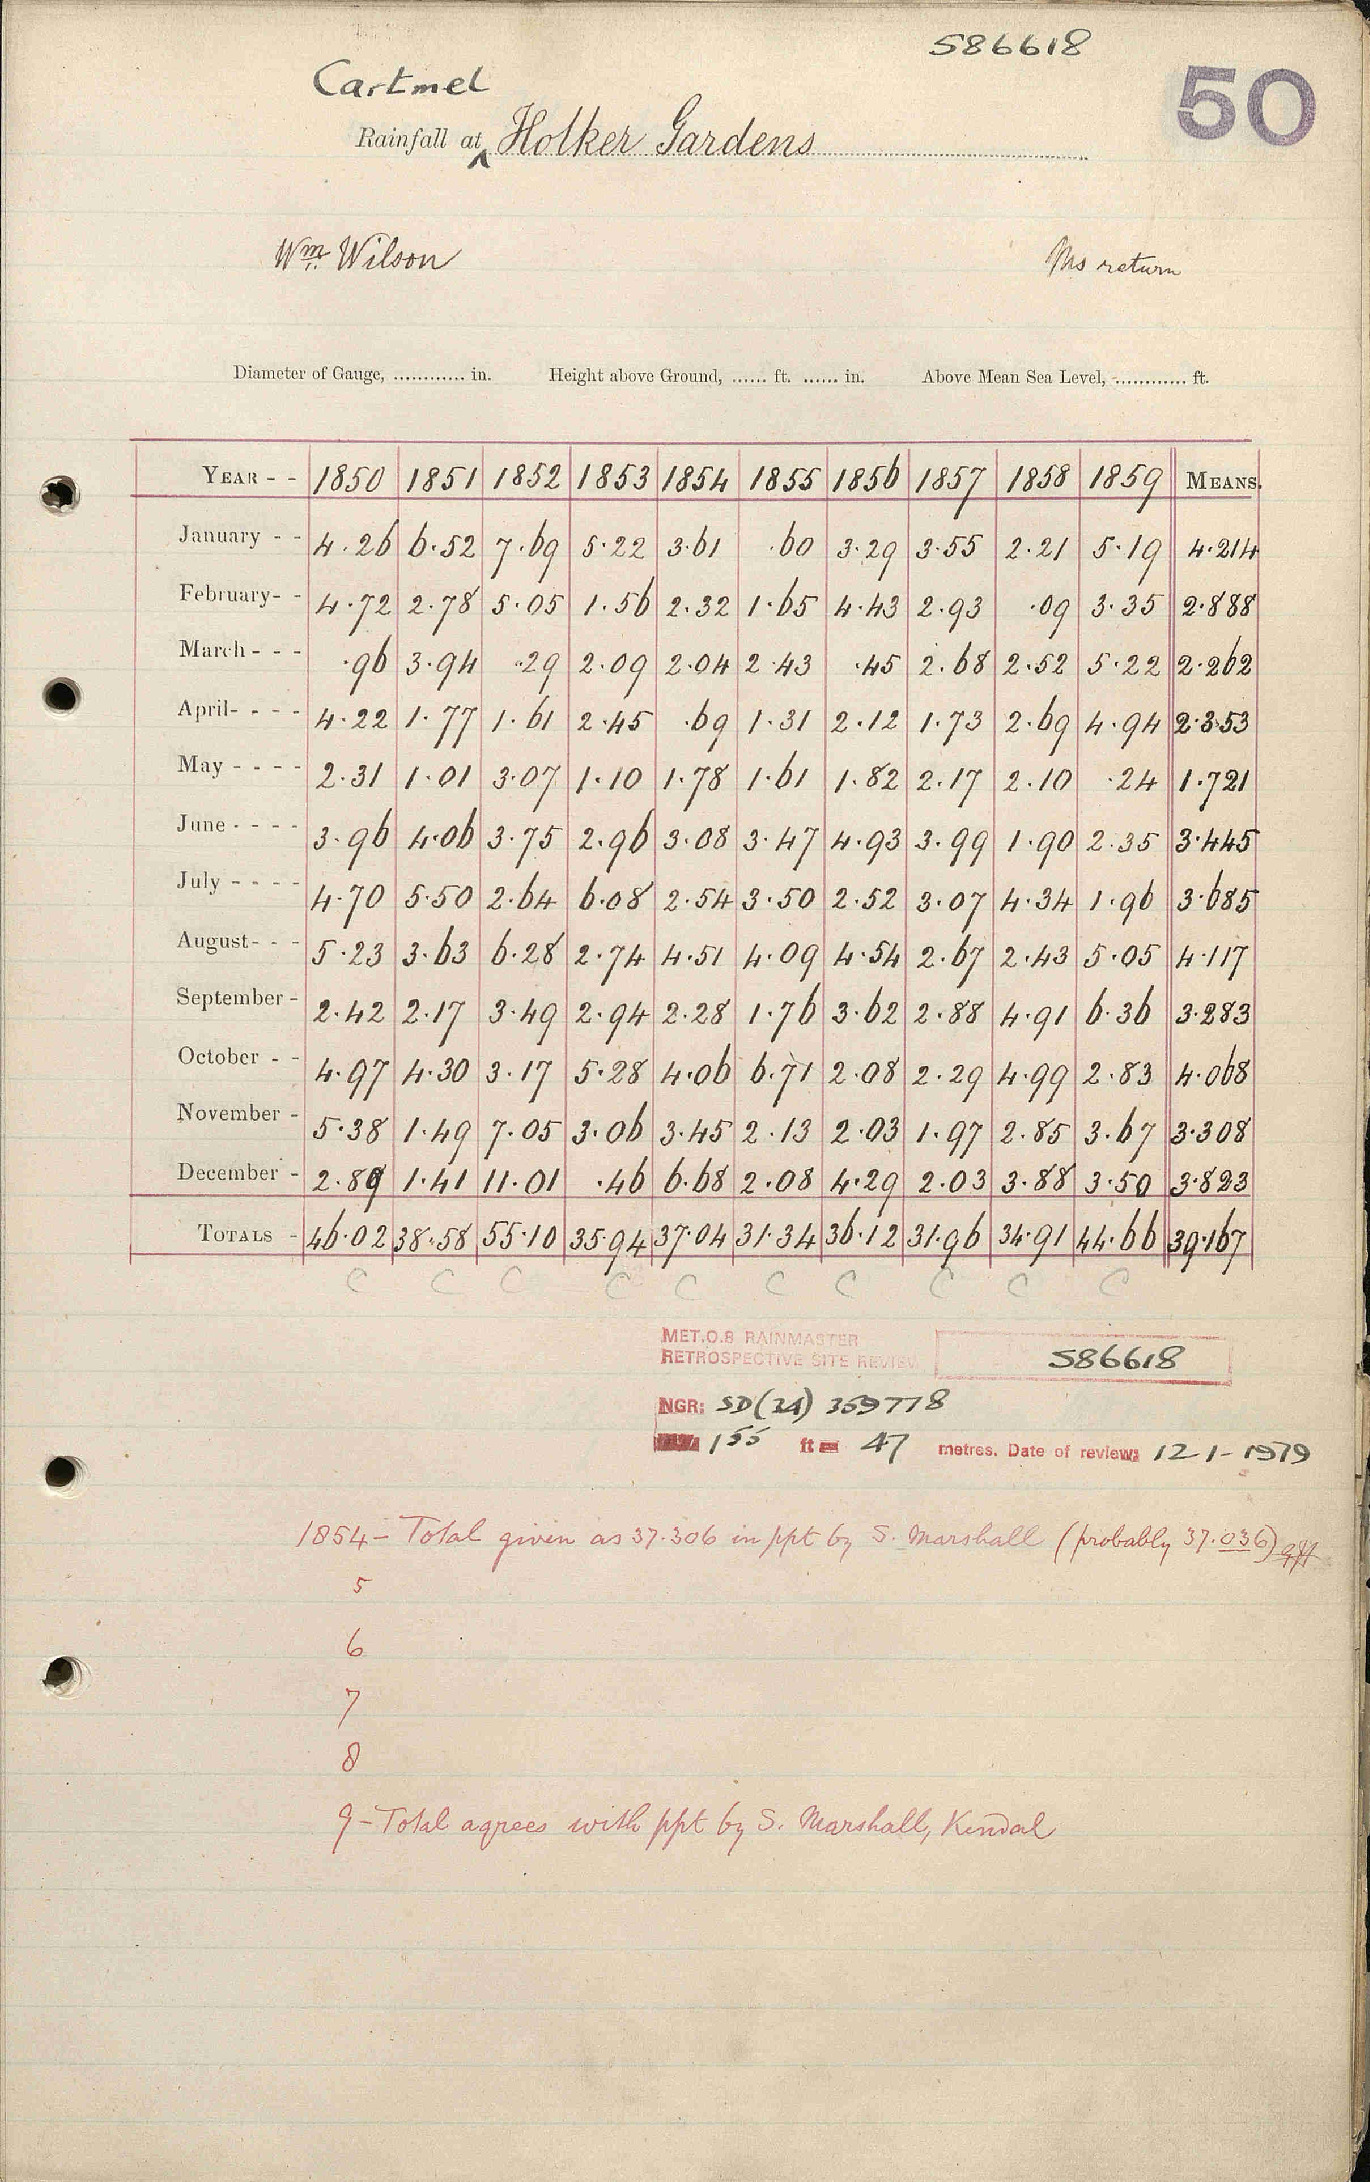 586618
50
Cartmel
Rainfall at Holker Gardens
Wm. Wilson Ms return
Diameter of Gauge, ............ in. Height above Ground, ...... ft. ...... in. Above Mean Sea Level, ............ ft.
YEAR - - 1850 1851 1852 1853 1854 1855 1856 1857 1858 1859 MEANS.
January - - 4.26 6.52 7.69 5.22 3.61 .60 3.29 3.55 2.21 5.19 4.214
February - - 4.72 2.78 5.05 1.56 2.32 1.65 4.43 2.93 .09 3.35 2.888
March - - - .96 3.94 .29 2.09 2.04 2.43 .45 2.68 2.52 5.22 2.262
April - - - - 4.22 1.77 1.61 2.45 .69 1.31 2.12 1.73 2.69 4.94 2.353
May - - - - 2.31 1.01 3.07 1.10 1.78 1.61 1.82 2.17 2.10 .24 1.721
June - - - - 3.96 4.06 3.75 2.96 3.08 3.47 4.93 3.99 1.90 2.35 3.445
July - - - - 4.70 5.50 2.64 6.08 2.54 3.50 2.52 3.07 4.34 1.96 3.685
August - - - 5.23 3.63 6.28 2.74 4.51 4.09 4.54 2.67 2.43 5.05 4.117
September - 2.42 2.17 3.49 2.94 2.28 1.76 3.62 2.88 4.91 6.36 3.283
October - - 4.97 4.30 3.17 5.28 4.06 6.71 2.08 2.29 4.99 2.83 4.068
November - 5.38 1.49 7.05 3.06 3.45 2.13 2.03 1.97 2.85 3.67 3.308
December - 2.89 1.41 11.01 .46 6.68 2.08 4.29 2.03 3.88 3.50 3.823
TOTALS - 46.02 38.58 55.10 35.94 37.04 31.34 36.12 31.96 34.91 44.66 39.167
C C C C C C C C C C
MET.O.8 RAINMASTER
RETROSPECTIVE SITE REVIEW 586618
NGR: SD(34) 359778
155 ft = 47 metres. Date of review: 12 1 - 1979
1854 - Total given as 37.306 in ppt by S. Marshall (probably 37.036)
5
6
7
8
9 - Total agrees with ppt by S. Marshall, Kendal